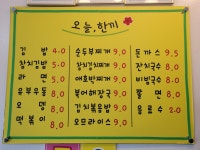 오늘, 한끼
김밥 4.0
참치김밥 5.0
라면 5.0
유부우동 5.0
오뎅 5.0
떡볶이 5.0
순두부찌개 9.0
참치김치찌개 9.0
애호박찌개 9.0
북어해장국 9.0
김치볶음밥 9.0
오므라이스 9.0
돈까스 9.5
잔치국수 8.0
비빔국수 8.0
쫄면 8.0
음료수 2.0